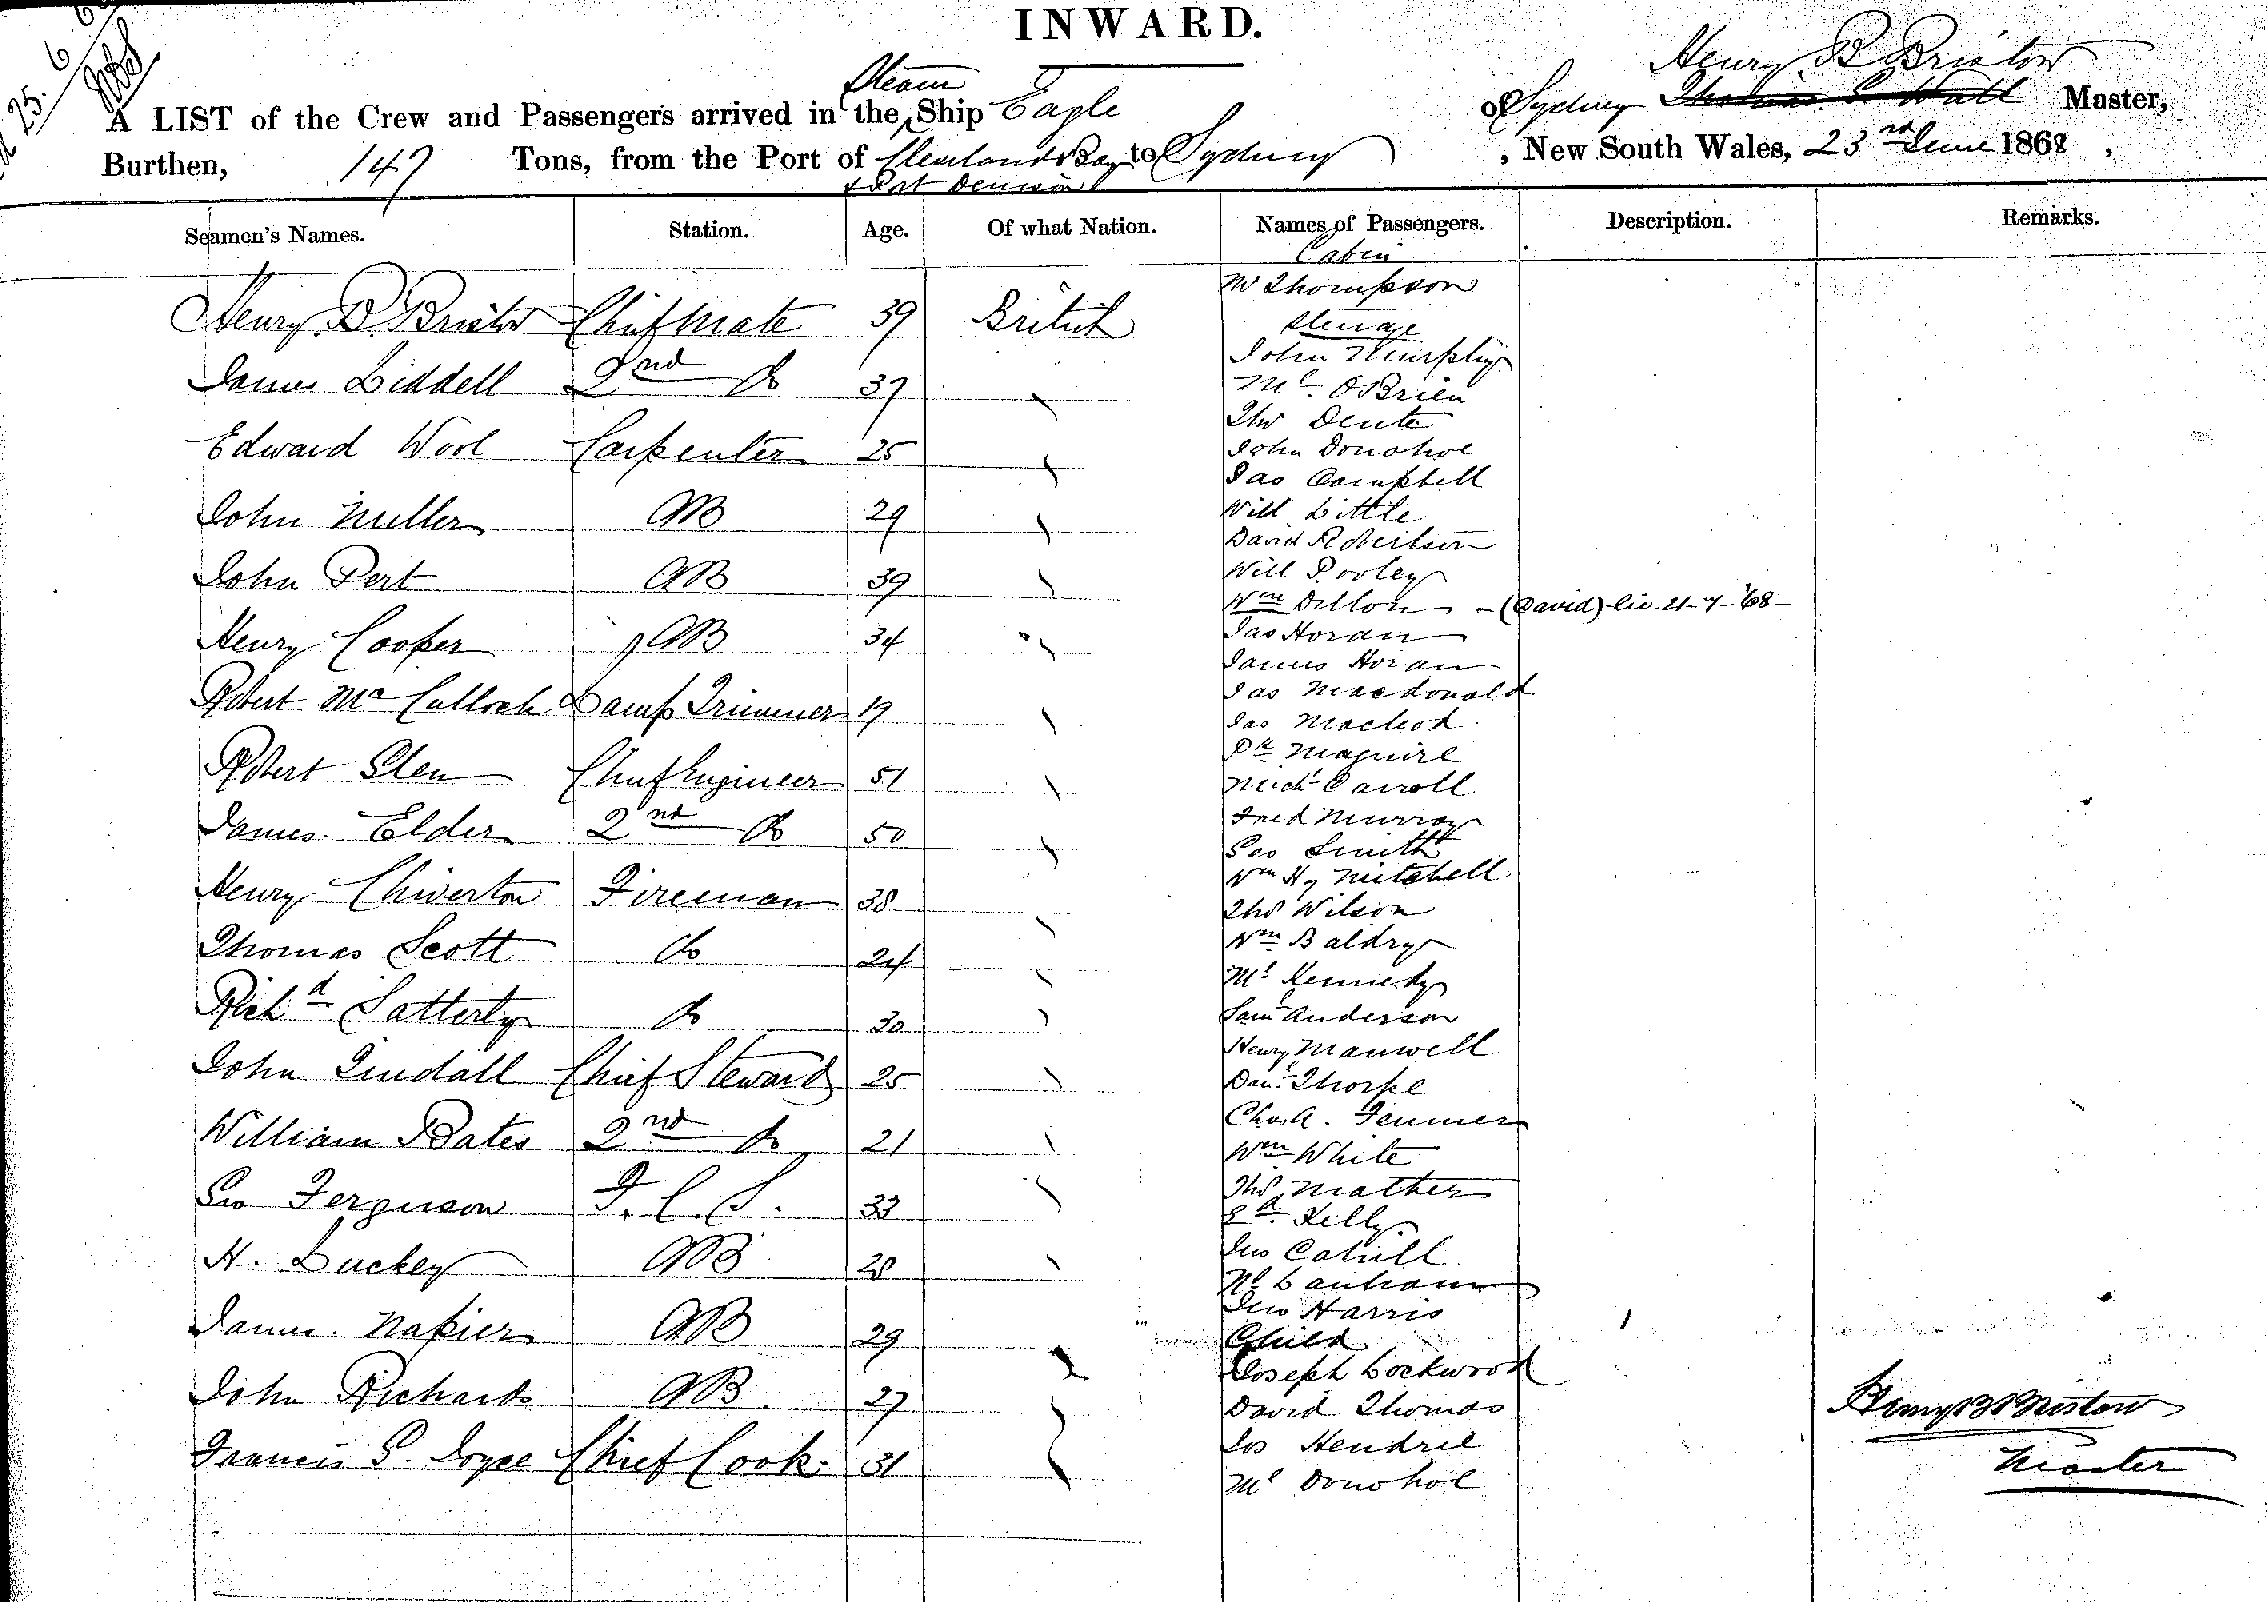 INWARD.
Steam
Henry B Bristow
A LIST of the Crew and Passengers arrived in the Ship Eagle of Sydney Thomas Wall Master,
Burthen, 147 Tons, from the Port of Cleveland Bay to Sydney, New South Wales, 23rd June 1868,
& Port Denison
Seamen's Names. Station. Age. Of what Nation. Names of Passengers. Description. Remarks.
Cabin
Mr Thompson
Henry B. Bristow Chief Mate 39 British
Steerage
John Murphy
James Liddell 2nd Do 37
Ml OBrien
Thos Dente
Edward Wool Carpenter 25
John Donohoe
Jas Campbell
John Miller AB 29
Will Little
David Robertson
John Pert AB 39
Will Pooley
Wm Dillon - (David) - lic 21-7-'68-
Henry Cooper AB 34
Jas Horan
James Horan
Robert McCulloch Lamp Trimmer 19
Jas Macdonald
Jas Macleod
Robert Glen Chief Engineer 51
Pk Maguire
Mich Carroll
James Elder 2nd Do 50
Fred Murray
Geo Smith
Henry Chiverton Fireman 38
Wm Hy Mitchell
Thos Wilson
Thomas Scott Do 24
Wm Baldry
Ml Kennedy
Richd Satterly Do 30
Saml Anderson
Henry Manwell
John Tindall Chief Steward 25
Danl Thorpe
Chas A. Fenner
William Bates 2nd Do 21
Wm White
Thos Mather
Geo Ferguson F. C. S. 33
Ed Kelly
Jno Cahill
H. Luckey AB 28
Ml Lanham
Jno Harris
James Napier AB 29
Child
Joseph Lockwood
John Richards AB 27
David Thomas
Henry B Bristow
Francis G. Joyce Chief Cook 31
Jos Hendrie
Master
Ml Donohoe